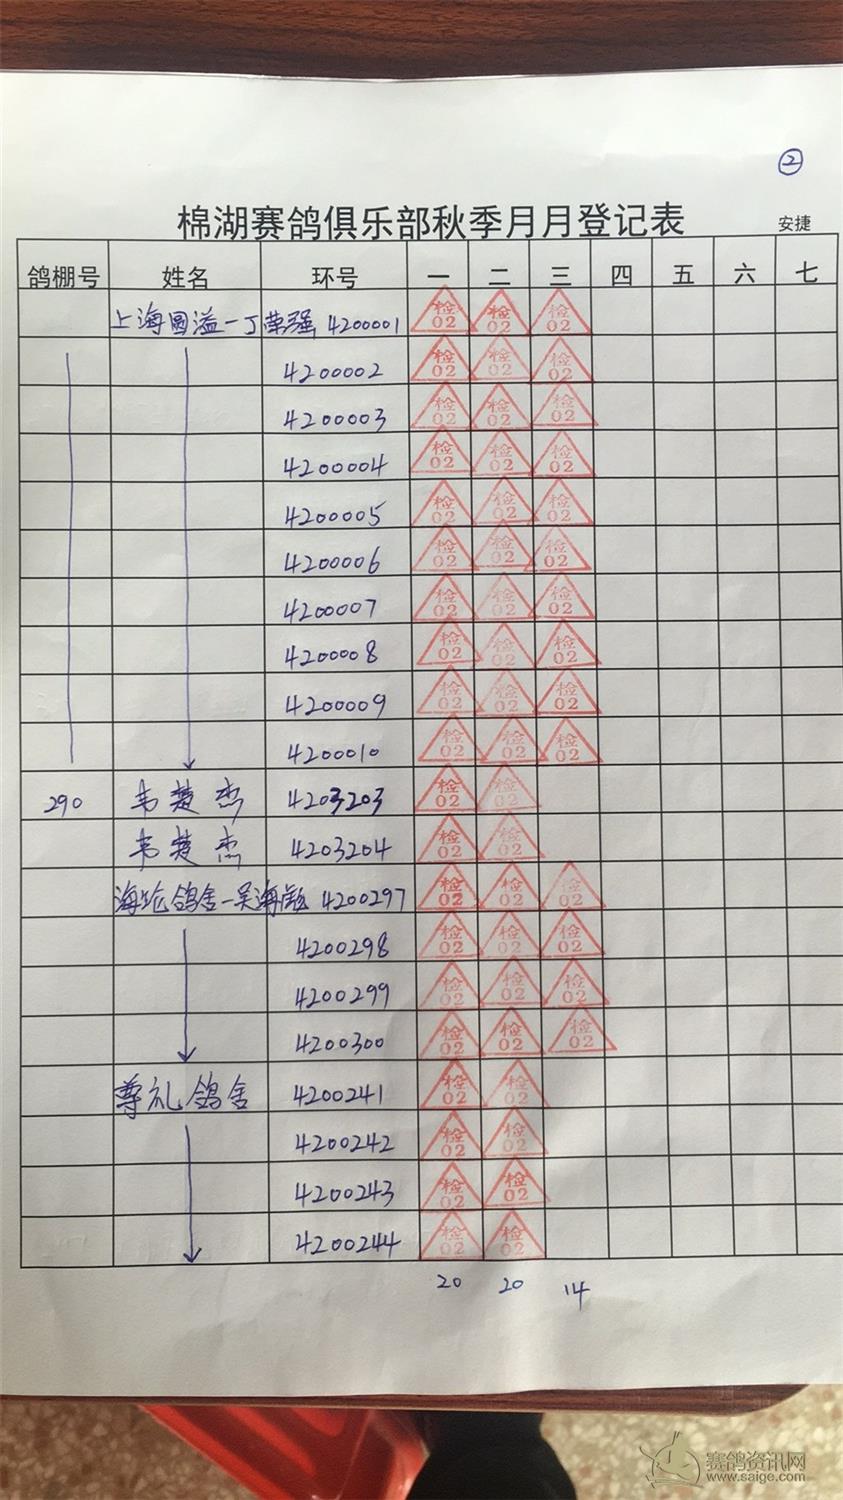 ②
棉湖赛鸽俱乐部秋季月月登记表 安捷
鸽棚号 姓名 环号 一 二 三 四 五 六 七
上海国溢-丁荣强 4200001 检02 检02 检02
4200002 检02 检02 检02
4200003 检02 检02 检02
4200004 检02 检02 检02
4200005 检02 检02 检02
4200006 检02 检02 检02
4200007 检02 检02 检02
4200008 检02 检02 检02
4200009 检02 检02 检02
4200010 检02 检02 检02
290 韦楚杰 4203203 检02 检02
韦楚杰 4203204 检02 检02
海纶鸽舍-吴海 4200297 检02 检02 检02
4200298 检02 检02 检02
4200299 检02 检02 检02
4200300 检02 检02 检02
尊礼鸽舍 4200241 检02 检02
4200242 检02 检02
4200243 检02 检02
4200244 检02 检02
20 20 14
赛鸽资讯网
www.saige.com